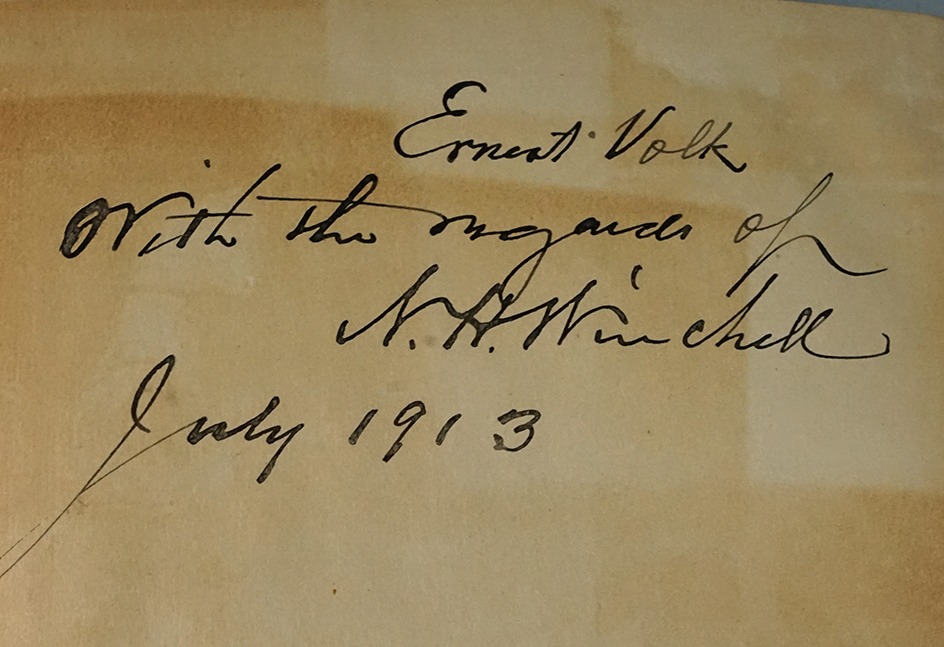 Ernest Volk
With the regards of
N. H. Winchell
July 1913